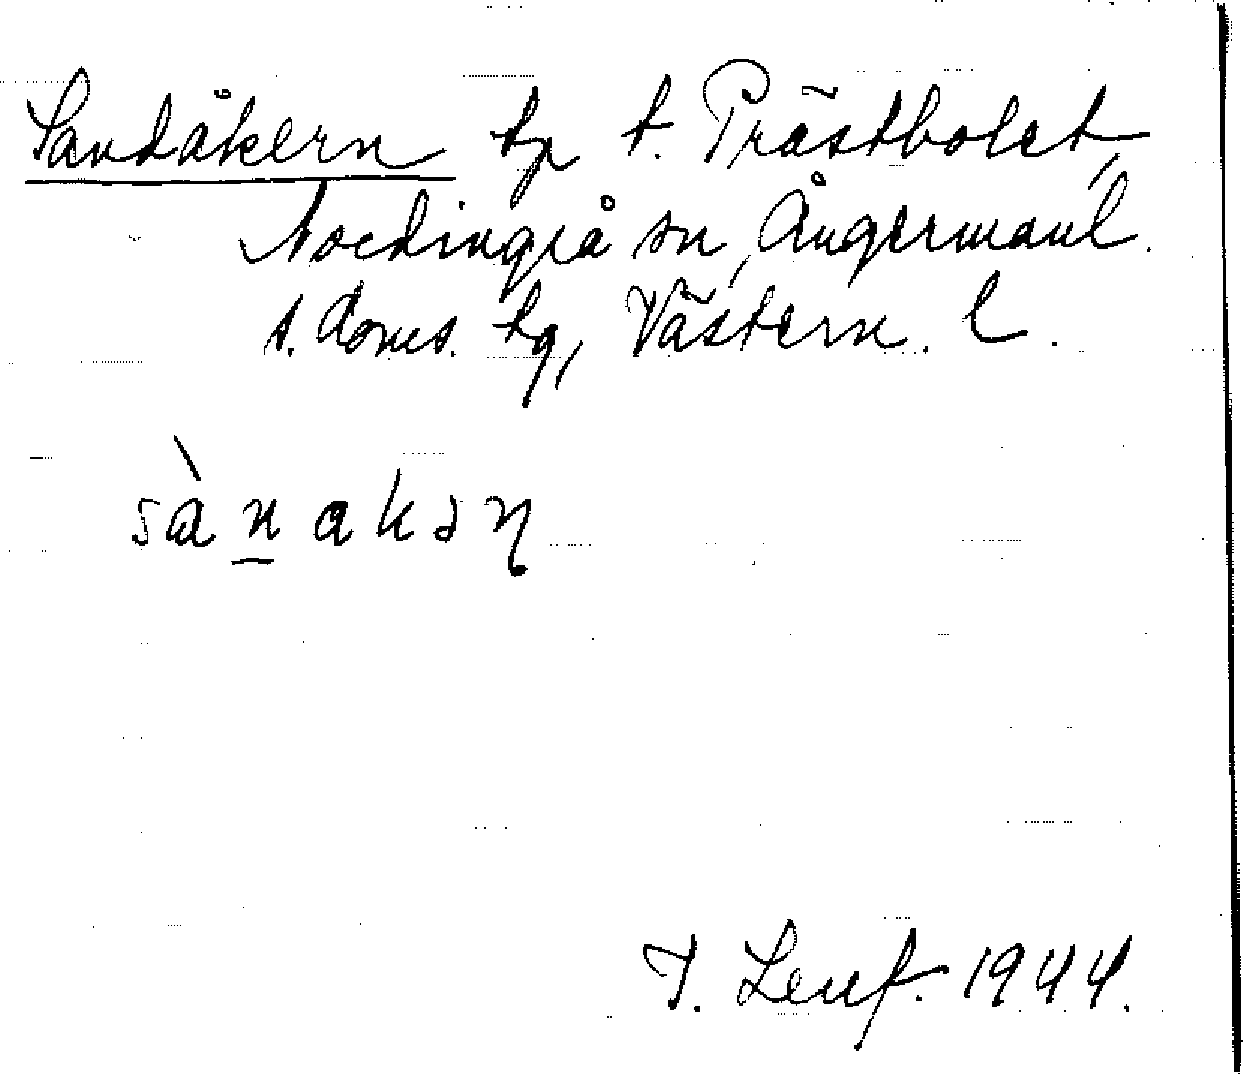 Sandåkern tp t. Prästbolet,
Nordingrå sn, Ångermanl.
s. doms. tg, Västern. l.
sànakən
T. Lenf. 1944.